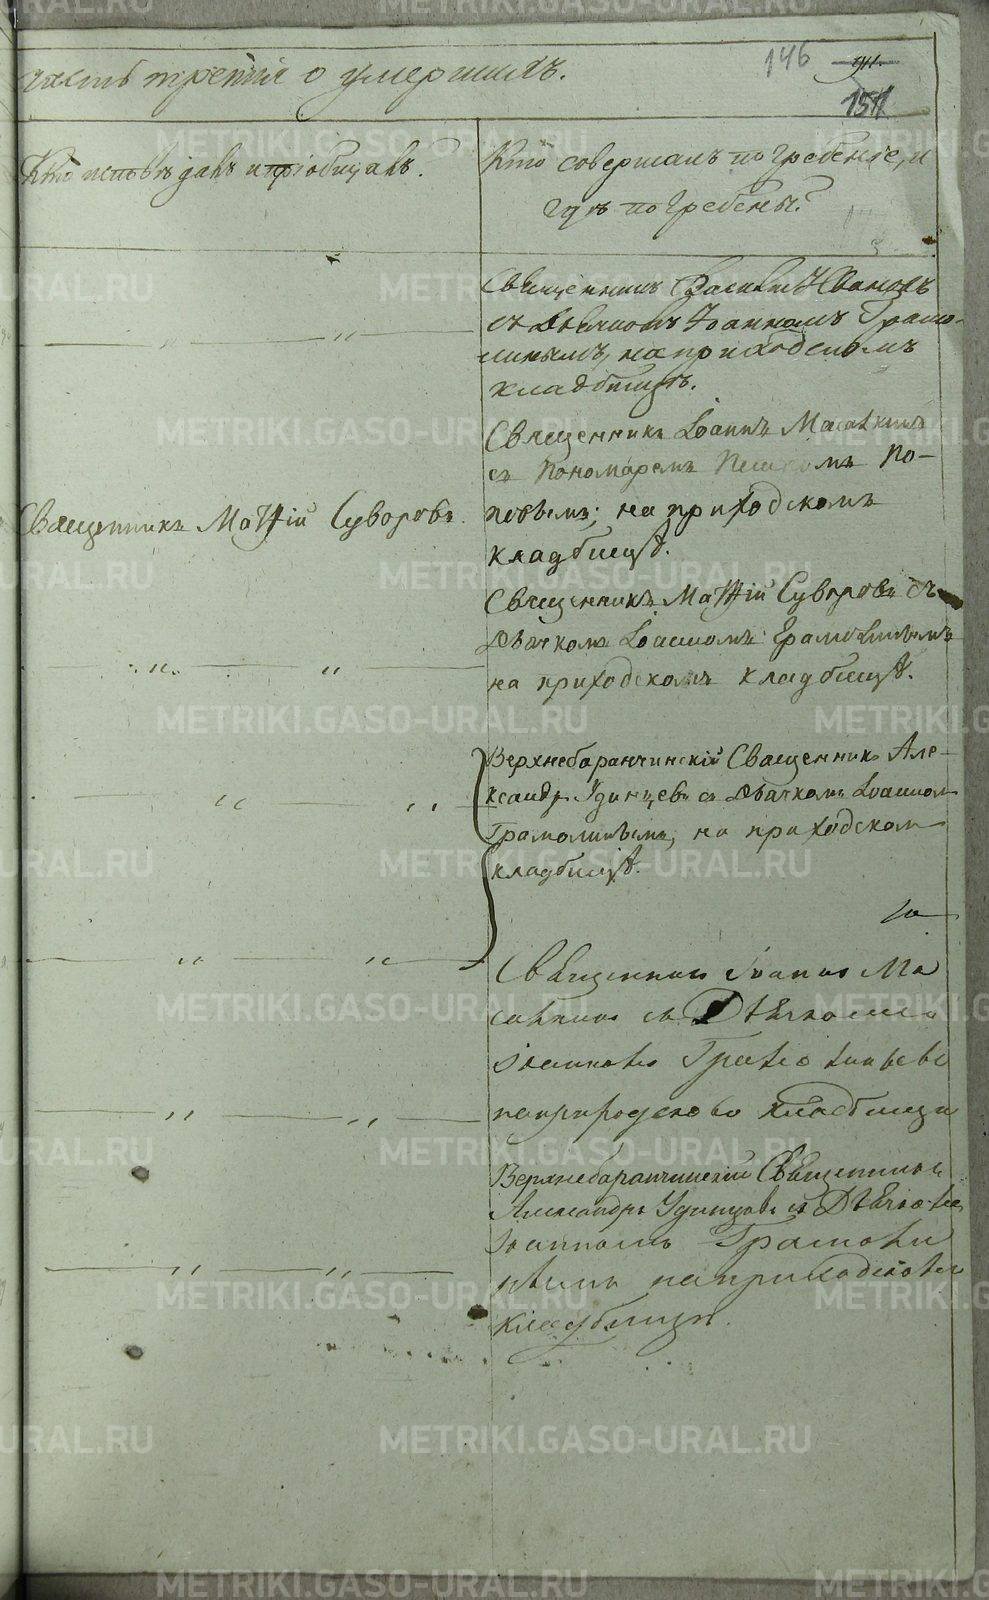 часть третія о умершихъ.
146
151
Кто исповѣдавъ и пріобщавъ?
Кто совершалъ погребеніе, и
гдѣ погребены?
Священникъ Василій Ивановъ
съ Дьячкомъ Іоанномъ Грамо-
линымъ, на приходскомъ
кладбищѣ.
Священникъ Іоаннъ
съ Пономаремъ По-
повымъ; на приходскомъ
кладбищѣ.
Священникъ Матѳій Суворовъ.
Священникъ Матѳій Суворовъ съ
Дьячкомъ Іоанномъ Грамолинымъ
на приходскомъ кладбищѣ.
Верхнебаранчинскій Священникъ Але-
ксандръ Удинцевъ съ Дьячкомъ Іоанном
Грамолинымъ, на приходском
кладбищѣ.
Священникъ Іоаннъ Ма
съ Дьячкомъ
Іоанномъ
на приходскомъ кладбищи
Верхнебаранчинскій Священникъ
Александръ Удинцовъ съ Дьячкомъ
Іоанномъ Грамоли
нымъ на приходскомъ
кладбищи.
METRIKI.GASO-URAL.RU